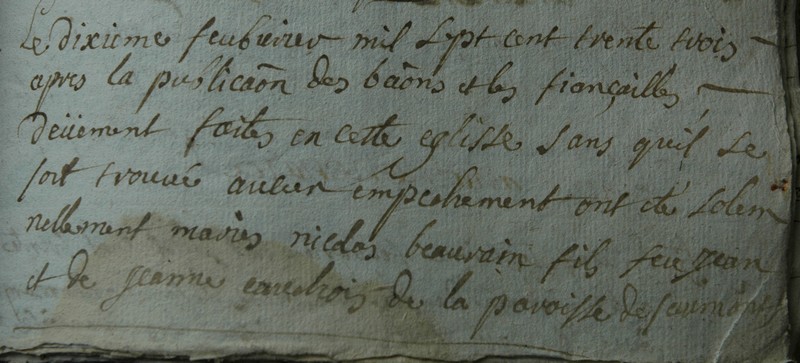 Le dixieme feubvrier mil sept cent trente trois
apres la publicaõn des bãons et les fiançailles
deüement faites en cette eglisse sans quil se
soit trouvé aucun empechement ont été solem
nellement mariés nicolas beauvain fils feu jean
et de jeanne de la paroisse de